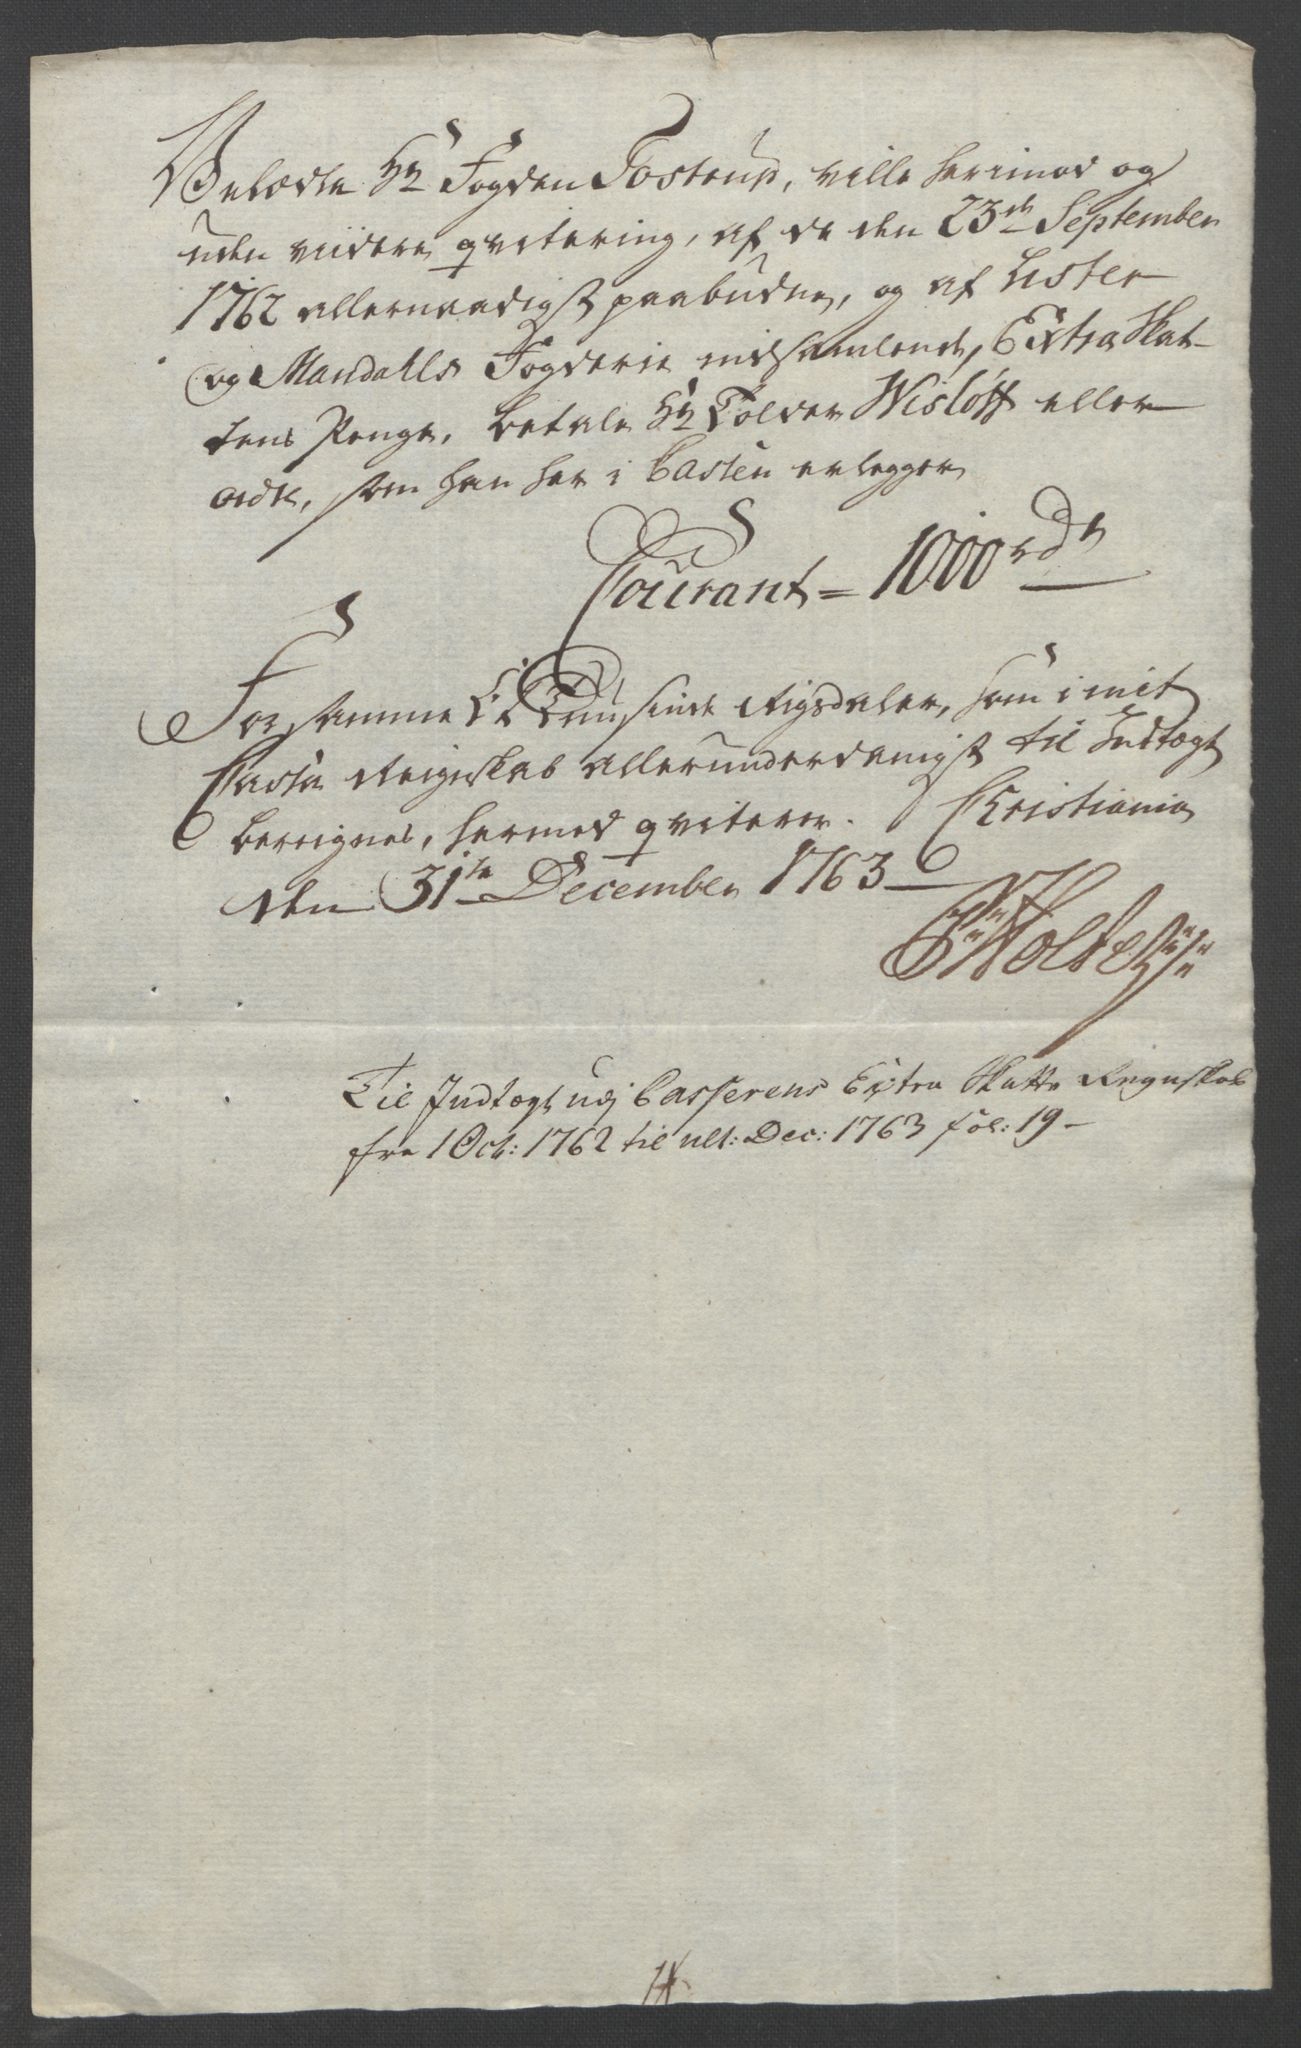 Velædle Hr Fogden Tostrup, ville herimod og
uden viidere qvitering, af de den 23de September
1762 allernaadigst paabudne, og af Lister
og Mandahls Fogderie indsamlende, Extra Skat-
tens Penge, betale Hr Tolder Wisløff eller
ordre, som han her i Cassen erlegger
Courant = 1000 rdr
For samme Et Tusinde Rigsdaler, som i mit
Cassa Reignskab allerunderdanigst til Indtægt
bereignes, hermed qviterer. Christiania
den 31te December 1763
Holte
Til Indtægt udj Casserens Extra Skatts Regnskab
fra 1 Oct: 1762 til ult: Dec: 1763 fol: 19 –